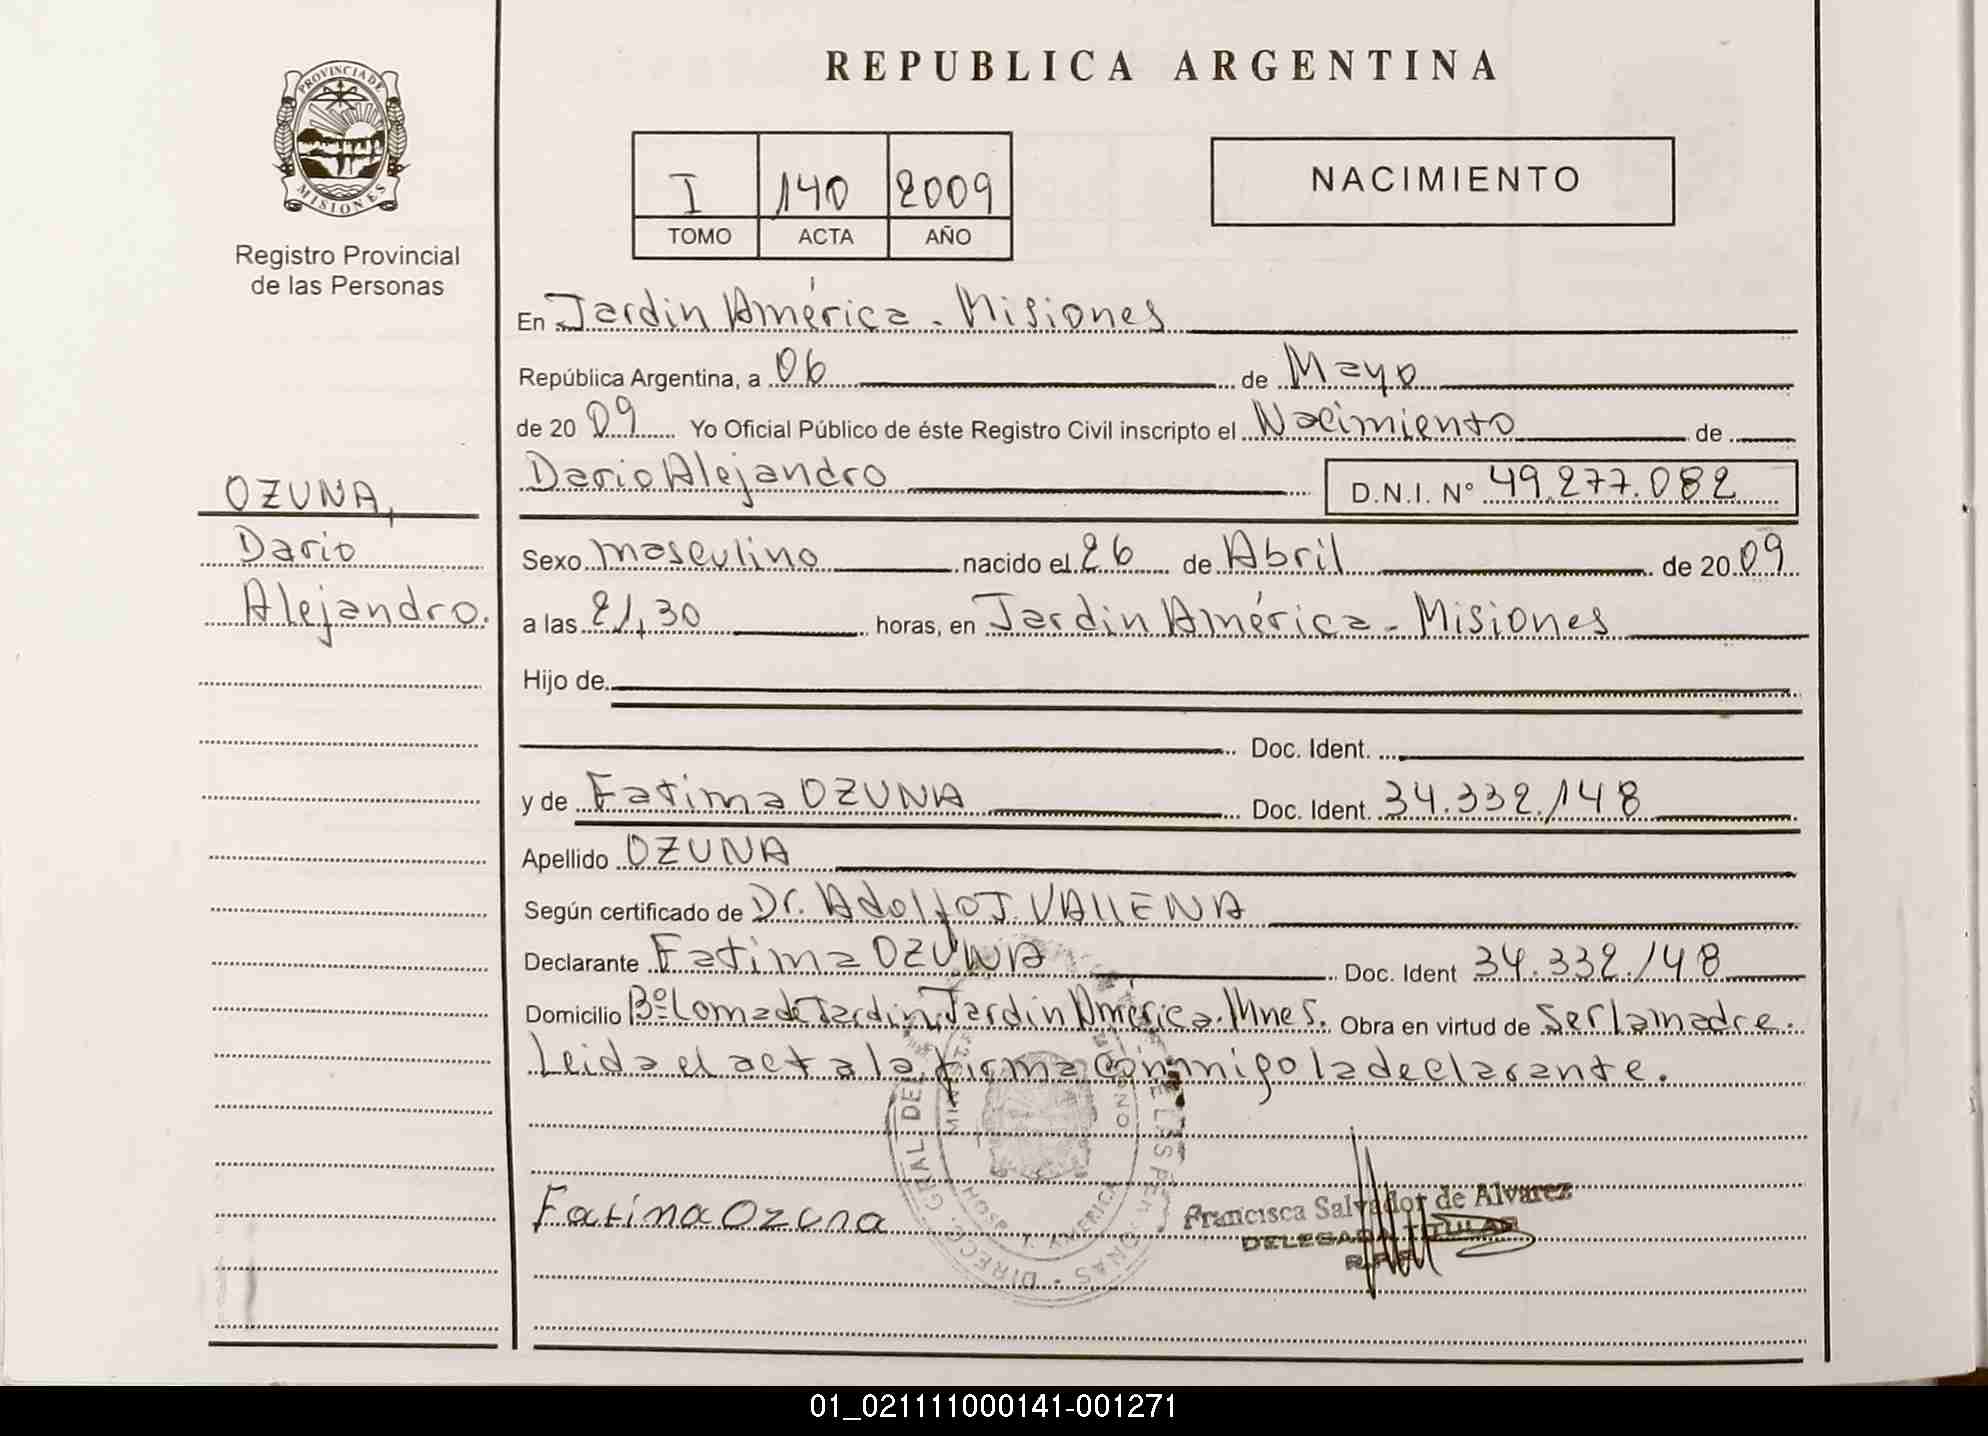 REPUBLICA ARGENTINA
PROVINCIA DE
MISIONES
Registro Provincial
de las Personas
I 140 2009
TOMO ACTA AÑO
NACIMIENTO
En Jardin América - Misiones
República Argentina, a 06 de Mayo
de 2009 Yo Oficial Público de éste Registro Civil inscripto el Nacimiento de
Dario Alejandro D.N.I. N° 49.277.082
OZUNA,
Dario
Alejandro.
Sexo masculino nacido el 26 de Abril de 2009
a las 21,30 horas, en Jardin América - Misiones
Hijo de
Doc. Ident.
y de Fatima OZUNA Doc. Ident. 34.332.148
Apellido OZUNA
Según certificado de Dr. Adolfo J. VALLENA
Declarante Fatima OZUNA Doc. Ident 34.332.148
Domicilio Bº Loma de Jardin, Jardin América. Mnes. Obra en virtud de ser la madre.
Leida el acta la firma conmigo la declarante.
Fatima Ozuna
Francisca Salvador de Alvarez
DELEGADA TITULAR
01_021111000141-001271